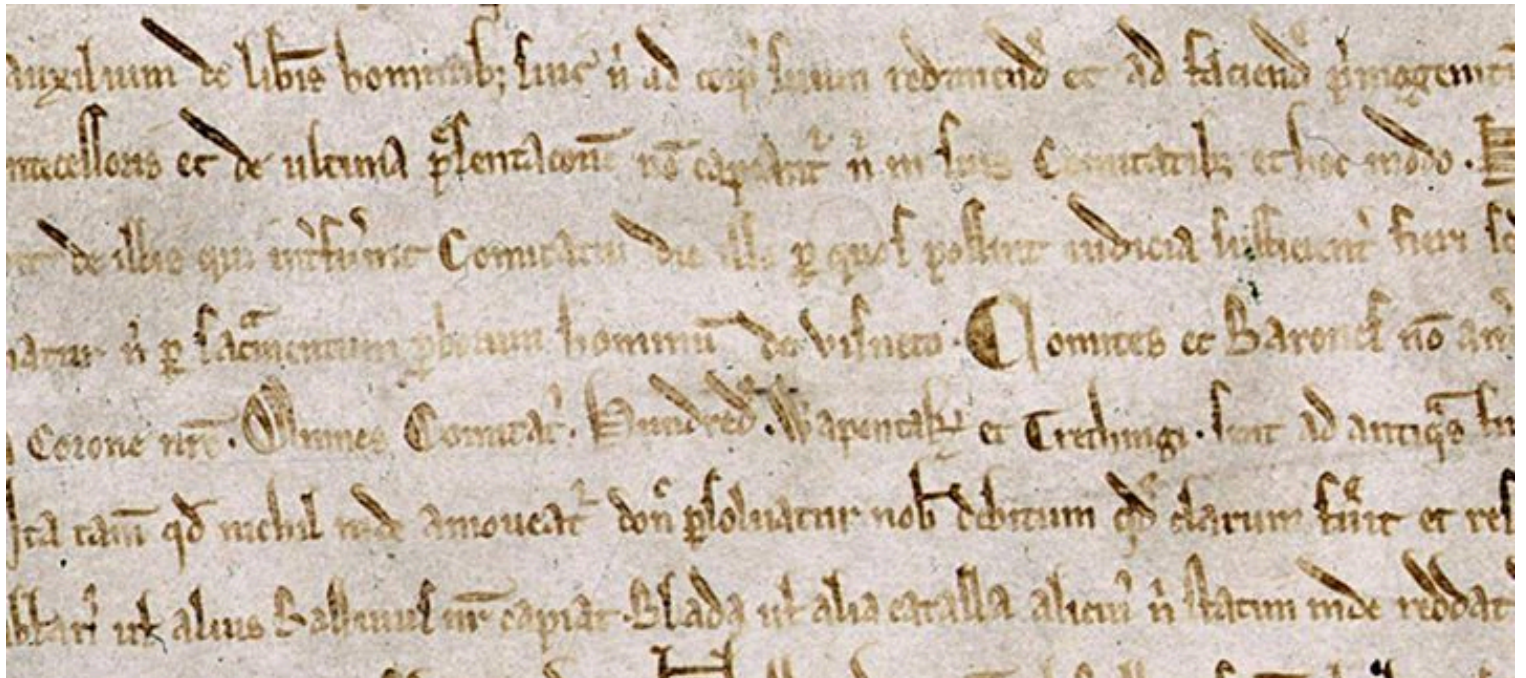 auxilium de lib̃is hominib; suis n̉ ad corp̉ suum redimend̉ et ad faciend̉ p̉mogenitũ
antecessoris et de ultima p̃sentacone nõ capiant᷑ n̉ in suis Comitatib; et hoc modo ·
de illis qui int̉fũint Comitatui die illo ꝑ quos possint iudicia sufficient̉ fieri
natur n̉ ꝑ sac̃mentum ꝓborum hominũ de visneto · Comites et Barones nõ am̉
Corone nr̃e · Omnes Comitat̉ · Hundred̉ · Wapentak̉ et Trethingi · sint ad antiq̃s
Ita tam̃ qd̃ nichil inde amoveat᷑ don̉ ꝑsolvatur nob̃ debitum qd̃ clarum fũit et
ul̃ alius Ballivus nr̃ capiat · Blada ul̃ alia catalla alicui᷒ n̉ statim inde reddat